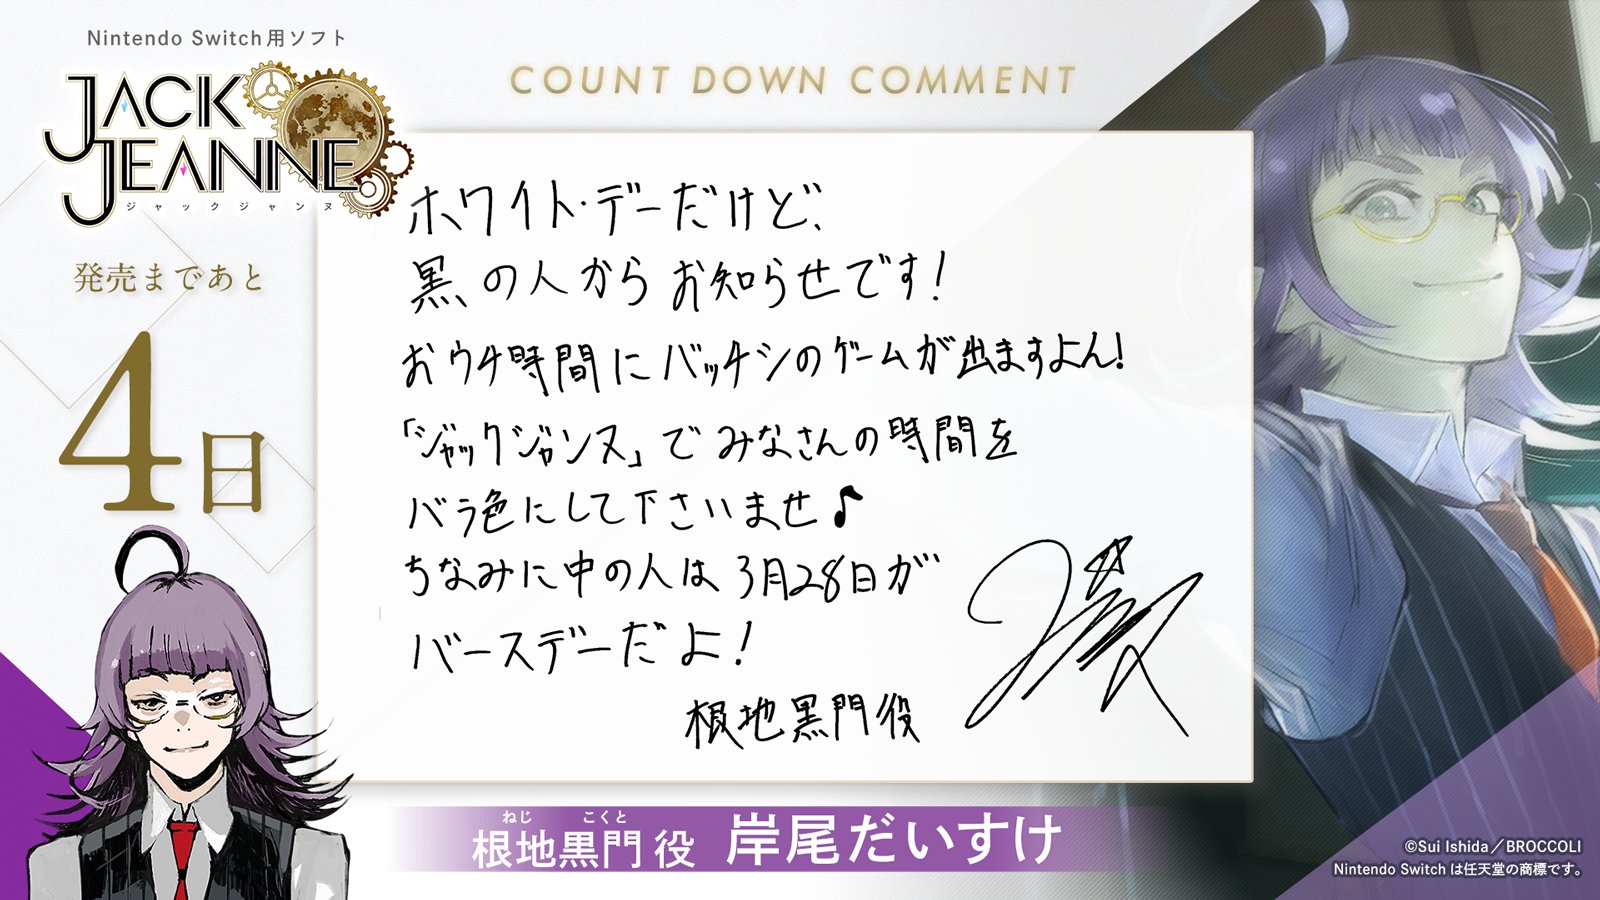 Nintendo Switch用ソフト
JACK
JEANNE
ジャックジャンヌ
発売まであと
4日
COUNT DOWN COMMENT
ホワイト・デーだけど、
黒、の人からお知らせです!
おウチ時間にバッチシのゲームが出ますよん!
「ジャックジャンヌ」でみなさんの時間を
バラ色にして下さいませ♪
ちなみに中の人は3月28日が
バースデーだよ!
根地黒門役
ねじ こくと
根地黒門役 岸尾だいすけ
©Sui Ishida/BROCCOLI
Nintendo Switch は任天堂の商標です。